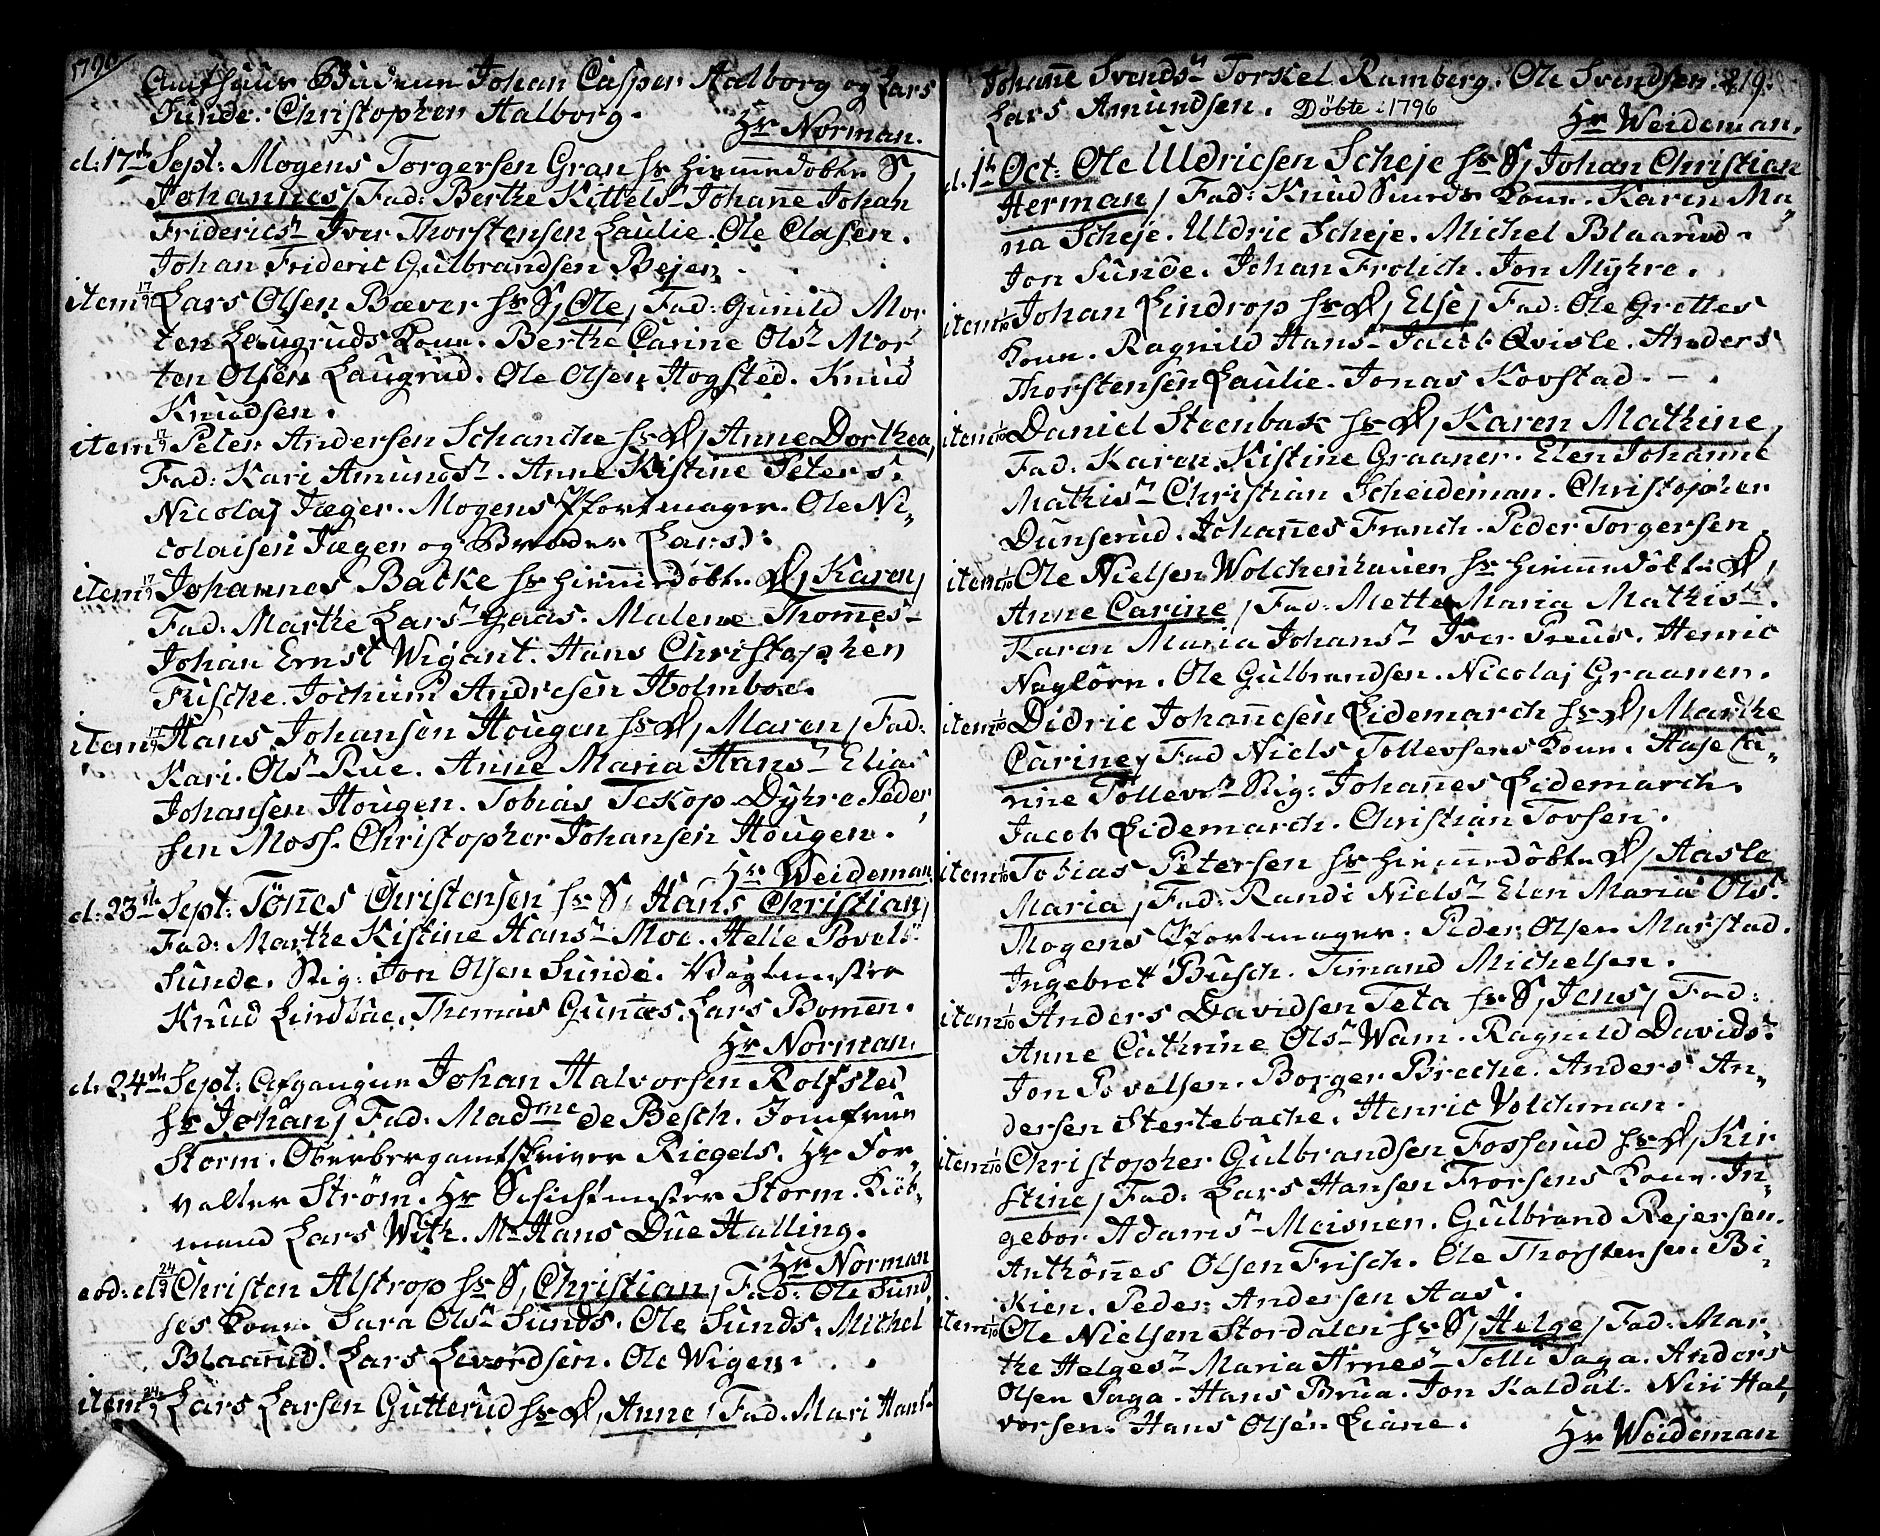 1796
Johan Casper Aalborg og Lars
Sunde. Christopher Aalborg.
Hr Norman.
d: 17de Sept: Mogens Torgersen Gran hs hiemmedøbte S,
Johannes, Fad: Berthe Kittels- Johane Johan
Friderichsn Iver Thorstensen Laulie. Ole Clasen.
Johan Frideric Gulbrandsen Bejer.
item 17/9 Lars Olsen Bæver hs S, Ole, Fad: Gunild Mor
ten Laugruds Konn. Berthe Carine Olsn Mor
ten Olsen Laugrud. Ole Olsen Hogsted. Knud
Knudsen.
item 17/9 Peter Andersen Schanche hs D, Anne Dorthea,
Fad: Kari Amundsn. Anne Kistine Petersn.
Nicolaj Jæger. Mogens Pfortmager. Ole Ni„
colaisen Jæger og Broder Lars):
item 17/9 Johannes Bakke hs hiemmedøbte D, Karen,
Fad: Marthe Larsn Gaas. Malene Thomes-
Johan Ernst Wigant. Hans Christopher
Frische. Jochum Andresen Holmboe.
item 17/9 Hans Johansen Hougen hs D, Maren, Fad:
Kari Ols- Rue. Anne Maria Hansn Elias
Johansen Hougen. Tobias Dyhre Peder
sen Moss. Christopher Johansen Hougen.
Hr Weideman.
d: 23de Sept: Tönnes Christensen hs S, Hans Christian,
Fad: Marthe Kistine Hansn Moe. Helle Povelsn
Sunde. Stig: Jon Olsen Sunde. Vagtmester
Knud Lindboe. Thomas Gunnes. Lars Bomen.
Hr Norman.
d: 24de Sept: Afgangne Johan Halvorsen Rolfsted
hs Johan, Fad: Madme de Besch. Jomfrue
Storm. Oberbergamtskriver Riegels. Hr For„
valter Ström. Hr Schichtmester Storm. Kiöb„
mand Lars With. Mr Hans Due Halling.
Hr Norman
eod: d 24/9 Christen Alstrop hs S, Christian, Fad: Ole Sund
ses Konn. Sara Olsn Sunds. Ole Sunds. Mithel
Blaarud. Lars Levordsen. Ole Wigen.
item 24/9 Lars Larsen Gutterud hs D, Anne, Fad: Mari Hansn
Johanne Svendsn Torskel Ramberg. Ole Svendsen. 219.
Lars Amundsen. Döbte: 1796
Hr Weideman.
d. 1te Oct: Ole Uldricsen Scheje hs S, Johan Christian
Herman, Fad: Knud Konn. Karen Ma„
ria Scheje. Uldric Scheje. Michel Blaarud.
Jon Sunde. Johan Frolich. Jon Myhre.
item 1/10 Johan Lindrop hs D, Else, Fad: Ole Grettes
Konn. Ragnild Hans- Jacob Qvisle. Anders
Thorstensen Laulie. Jonas Kovstad.
item 1/10 Daniel Steenbak hs D, Karen Mathine,
Fad: Karen Kistine Graaner. Elen Johanne
Mathisn Christian Scheideman. Christopher
Dunserud. Johannes Franch. Peder Torgersen
item 1/10 Ole Nielsen Wolchenhauer hs hiemmedöbte D,
Anne Carine, Fad: Mette Maria Mathisn.
Karen Maria Johansn Iver Preus. Henric
Naglörn. Ole Gulbrandsen. Nicolaj Graaner.
item 1/10 Didric Johannesen Lidemarch hs D, Marthe
Carine, Fad Niels Tollevsens Konn. Aase Ca„
rine Tollevsn Stig: Johannes Lidemarch.
Jacob Lidemarch. Christian Torsen.
item 1/10 Tobias Petersen hs hiemmedöbte D, Aasle
Maria, Fad: Randi Nielsn Elen Maria Olsn.
Mogens Pfortmager. Peder Olsen Marstad.
Ingebret Busch. Timand Michelsen.
item 1/10 Anders Davidsen Teta hs S, Jens, Fad:
Anne Cathrine Olsn Wam. Ragnild Davidsn.
Jon Povelsen. Borger Breche. Anders An„
dersen Stertebache. Henric Volchman.
item 1/10 Christopher Gulbrandsen Fosserud hs D, Kir
stine, Fad: Lars Hansen Frorsens Konn. In„
gebor Adamsn Meisner. Gulbrand Rejersen.
Anthönnes Olsen Frisch. Ole Thorstensen Bi„
kien. Peder Andersen Aas.
item 1/10 Ole Nielsen Stordalen hs S, Helge, Fad: Mar„
the Helgesn Maria Arnesn Tolle Saga. Anders
Olsen Saga. Hans Brua. Jon Kaldal. Niri Hal„
vorsen. Hans Olsen Liane.
Hr Weideman